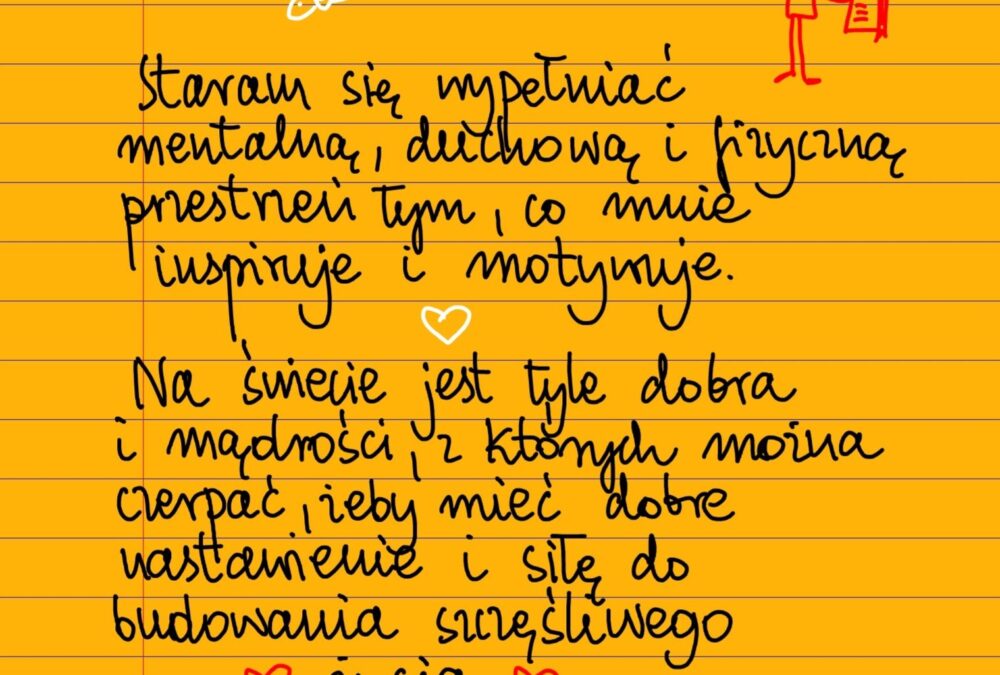 Staram się wypełniać
mentalną, duchową i fizyczną
przestrzeń tym, co mnie
inspiruje i motywuje.
Na świecie jest tyle dobra
i mądrości, z których można
czerpać, żeby mieć dobre
nastawienie i siłę do
budowania szczęśliwego